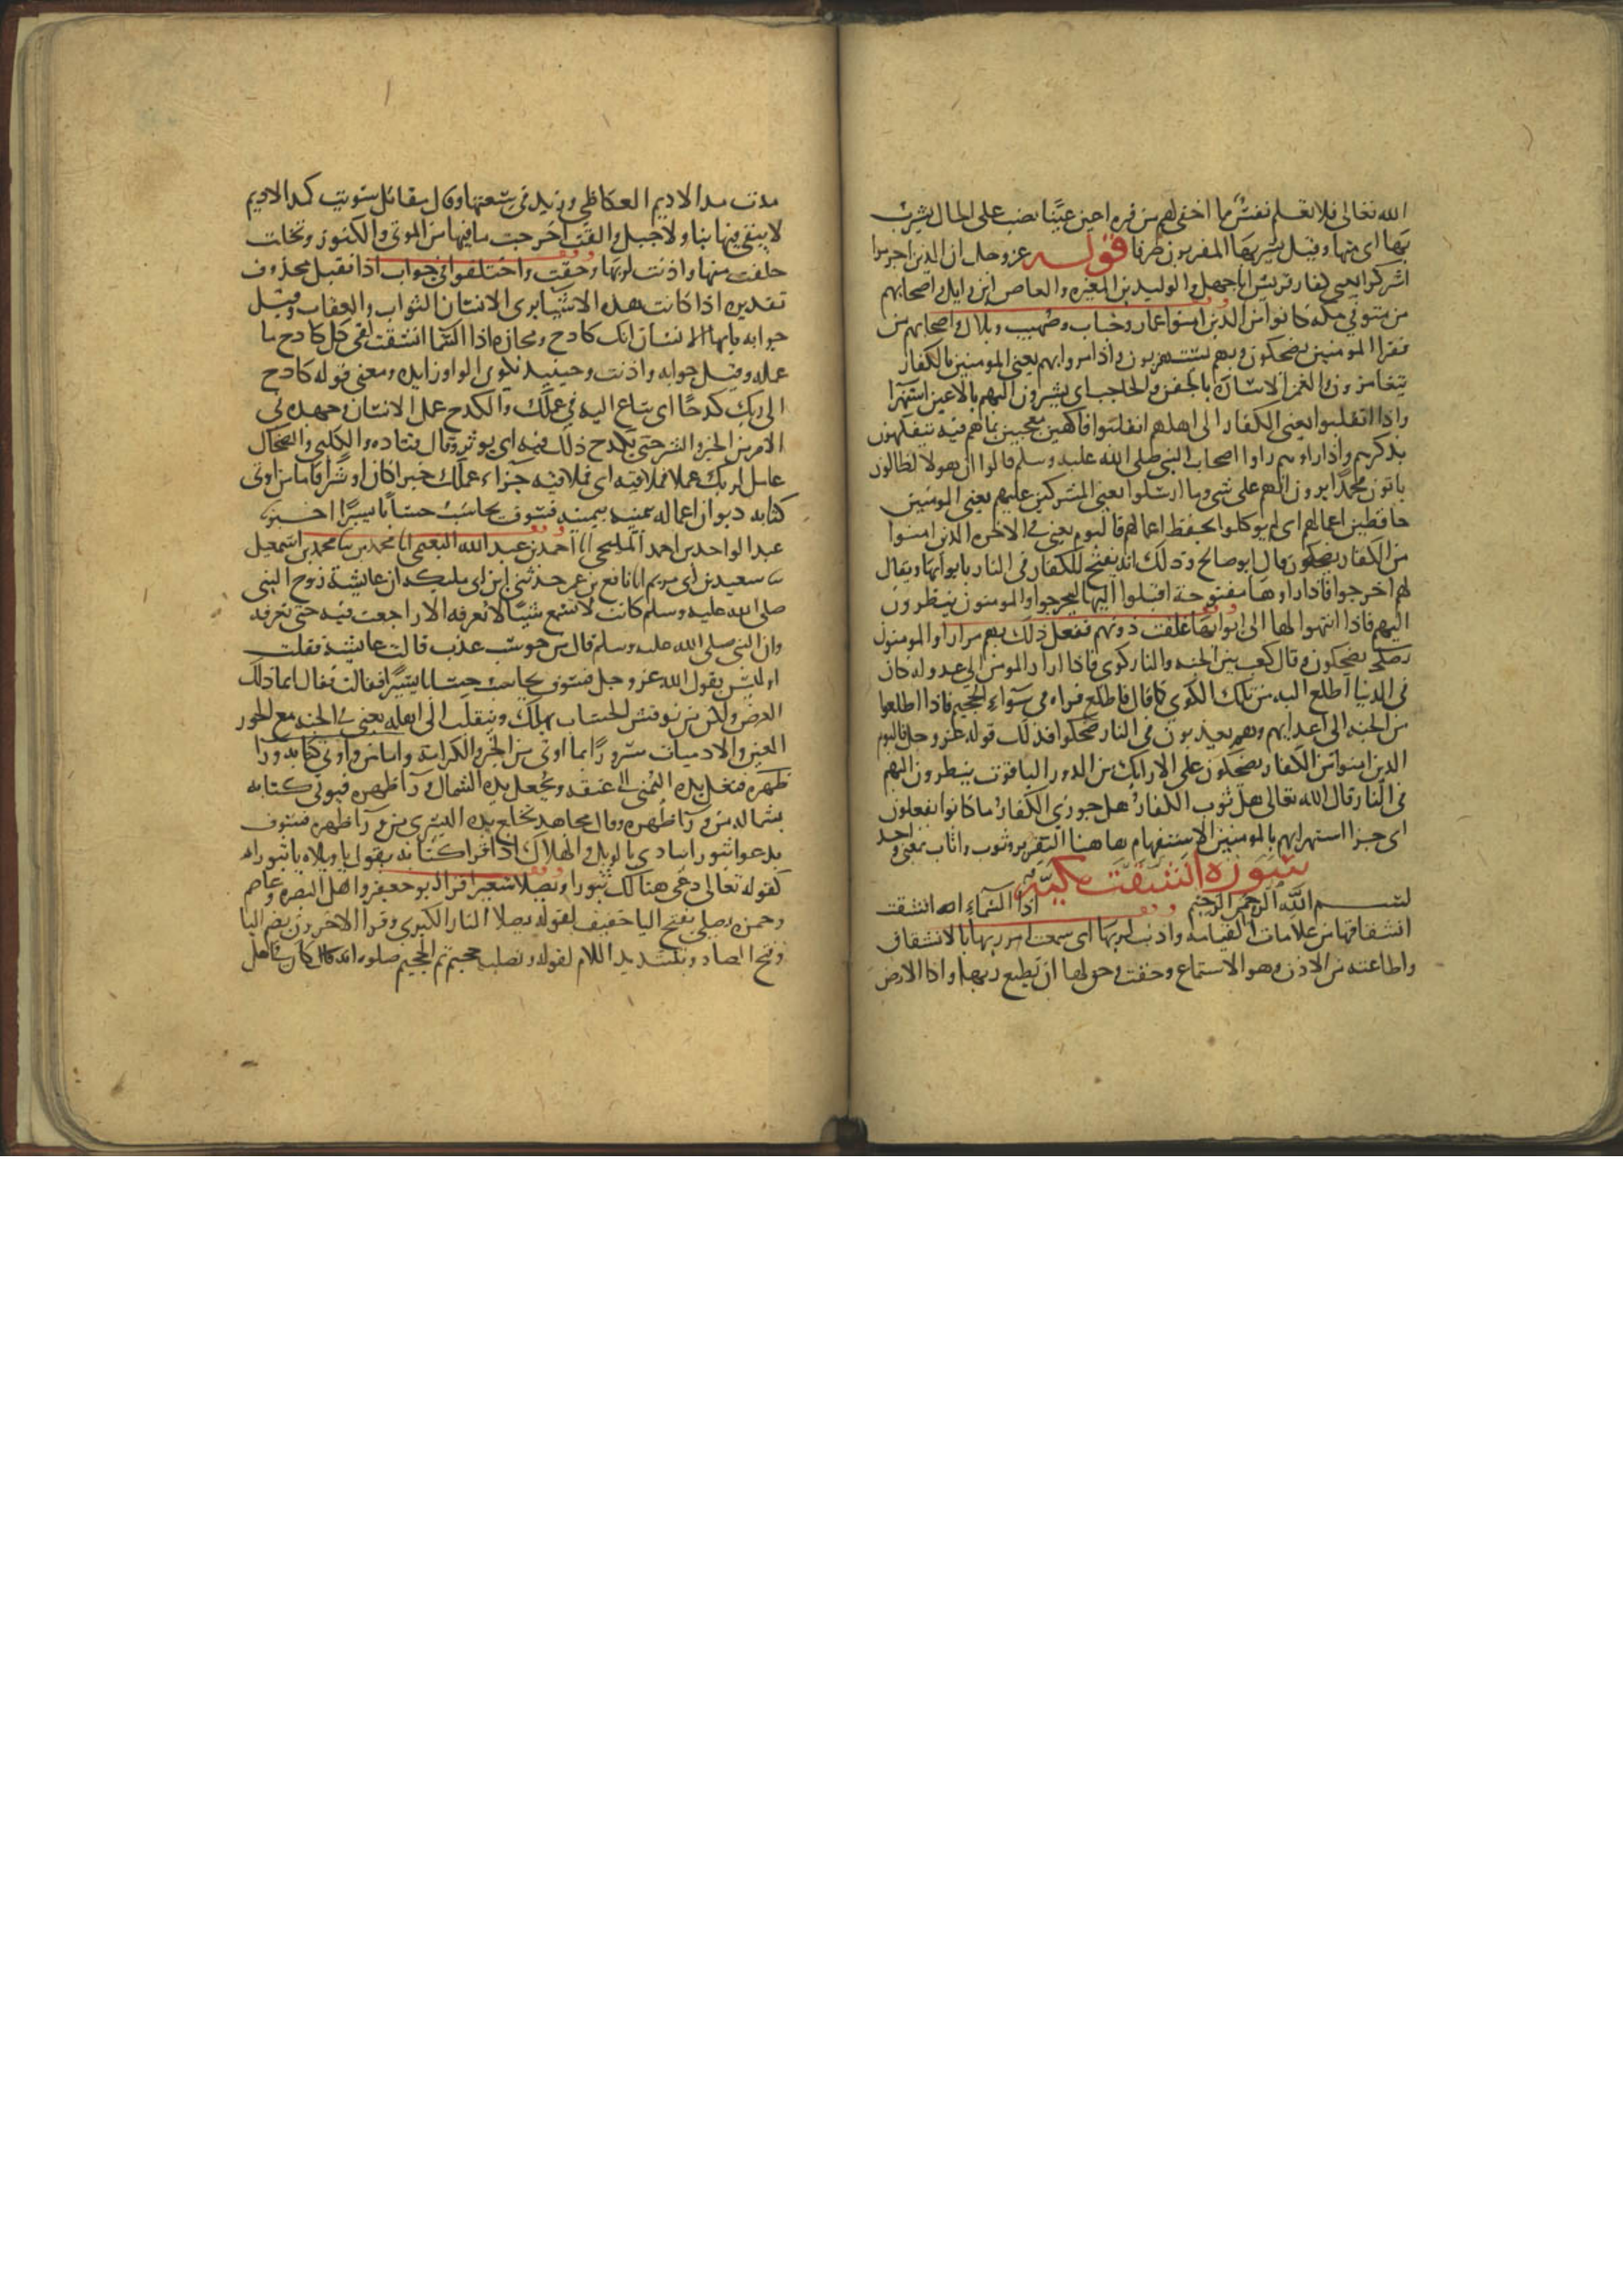 الله تعالى فلا تعلم نفس ما اخفى لهم من قره اعين عينا نصب على الحال يشرب
بها اى منها وقيل يشربها المقربون صرفا قوله عز وجل ان الذين اجرموا
اشركوا يعنى كفار قريش ابا جهل والوليد بن المغيره والعاص ابن وايل واصحابهم
من مترفي مكه كانوا من الذين امنوا عمار وخباب وصهيب وبلال واصحابهم من
فقرا المومنين يضحكون وبهم يستهزون واذا مروا بهم يعنى المومنين بالكفار
يتغامزون والغمز الاشاره بالجفن والحاجب اى يشيرون اليهم بالاعين استهزا
واذا انقلبوا يعنى الكفار الى اهلهم انقلبوا فاكهين معجبين بما هم فيه يتفكهون
بذكرهم واذا راوهم راوا اصحاب النبى صلى الله عليه وسلم قالوا ان هولا لضالون
ياتون محمدا يرون انهم على شى وما ارسلوا يعنى المشركين عليهم يعنى المومنين
حافظين اعمالهم اى لم يوكلوا بحفظ اعمالهم فاليوم يعنى في الاخره الذين امنوا
من الكفار يضحكون قال ابو صالح وذلك انه يفتح للكفار فى النار بابوابها ويقال
لهم اخرجوا فاذا راوها مفتوحة اقبلوا اليها ليخرجوا والمومنون ينظرون
اليهم فاذا انتهوا لها الى ابوابها غلقت دونهم ففعل ذلك بهم مرارا والمومنون
يضحكون وقال كعب بين الجنه والنار كوى فاذا اراد المومن الى عدو له كان
فى الدنيا اطلع اليه من تلك الكوى كما قال فاطلع فراه في سواء الجحيم فاذا اطلعوا
من الجنه الى اعدايهم وهم يعذبون فى النار ضحكوا فذلك قوله عز وجل فاليوم
الذين امنوا من الكفار يضحكون على الارايك من الدور الياقوت ينظرون اليهم
فى النار قال الله تعالى هل ثوب الكفار هل جوزي الكفار ما كانوا يفعلون
اى جزا استهزايهم بالمومنين الاستفهام هاهنا التقرير وثوب واثاب بمعنى واحد
سورة انشقت مكيه
بسم الله الرحمن الرحيم اذا السماء انشقت
انشقاقها من علامات القيامه واذنت لربها اى سمعت امر ربها بالانشقاق
واطاعته من الاذن وهو الاستماع وحقت حق لها ان تطيع ربها واذا الارض
مدت مد الاديم العكاظى وزيد فى سعتها وقال مقاتل سويت كمد الاديم
لا يبقى فيها بنا ولا جبل والقت اخرجت ما فيها من الموتى والكنوز وتخلت
خلت منها واذنت لربها وحقت واختلفوا في جواب اذا فقيل محذوف
تقديره اذا كانت هذه الاشيا يرى الانسان الثواب والعقاب وقيل
جوابه يا ايها الانسان انك كادح ومجازه اذا السما انشقت لقى كل كادح ما
عمله وقيل جوابه واذنت وحينيذ تكون الواو زايده ومعنى قوله كادح
الى ربك كدحا اى ساع اليه في عملك والكدح عمل الانسان وجهده في
الامر من الخير والشر حتى يكدح ذلك فيه اى يوثر وقال قتاده والكلبى والضحاك
عامل لربك عملا فملاقيه اى فملاقيه جزاء عملك خيرا كان او شرا فاما من اوتى
كتابه ديوان اعماله بيمينه فسوف يحاسب حسابا يسيرا اخبرنا
عبد الواحد بن احمد المليحى انا احمد بن عبد الله النعيمى انا محمد بن يوسف نا محمد بن اسمعيل
نا سعيد بن ابى مريم انا نافع بن عمر حدثنى ابن ابى مليكه ان عايشة زوج النبى
صلى الله عليه وسلم كانت لا تسمع شيئا لا تعرفه الا راجعت فيه حتى تعرفه
وان النبى صلى الله عليه وسلم قال من حوسب عذب قالت عايشة فقلت
اوليس يقول الله عز وجل فسوف يحاسب حسابا يسيرا فقالت فقال انما ذلك
العرض ولكن من نوقش الحساب يهلك وينقلب الى اهله يعنى في الجنه مع الحور
العين والادميات مسرورا بما اوتى من الخير والكرامة واما من اوتى كتابه ورا
ظهره فتغل يده اليمنى الى عنقه وتجعل يده الشمال ورآ ظهره فيوتى كتابه
بشماله من ورآ ظهره وقال مجاهد تخلع يده اليسرى من ورآ ظهره فسوف
يدعوا ثبورا ينادى بالويل والهلاك اذا قرا كتابه يقول يا ويلاه يا ثبوراه
كقوله تعالى دعوا هنالك ثبورا ويصلا سعيرا قرا ابو جعفر واهل البصره وعاصم
وحمزه يصلى بفتح اليا خفيف لقوله يصلا النار الكبرى وقرا الاخرون بضم اليا
وفتح الصاد وبتشديد اللام لقوله وتصليه جحيم ثم الجحيم صلوه انه كان فى اهله